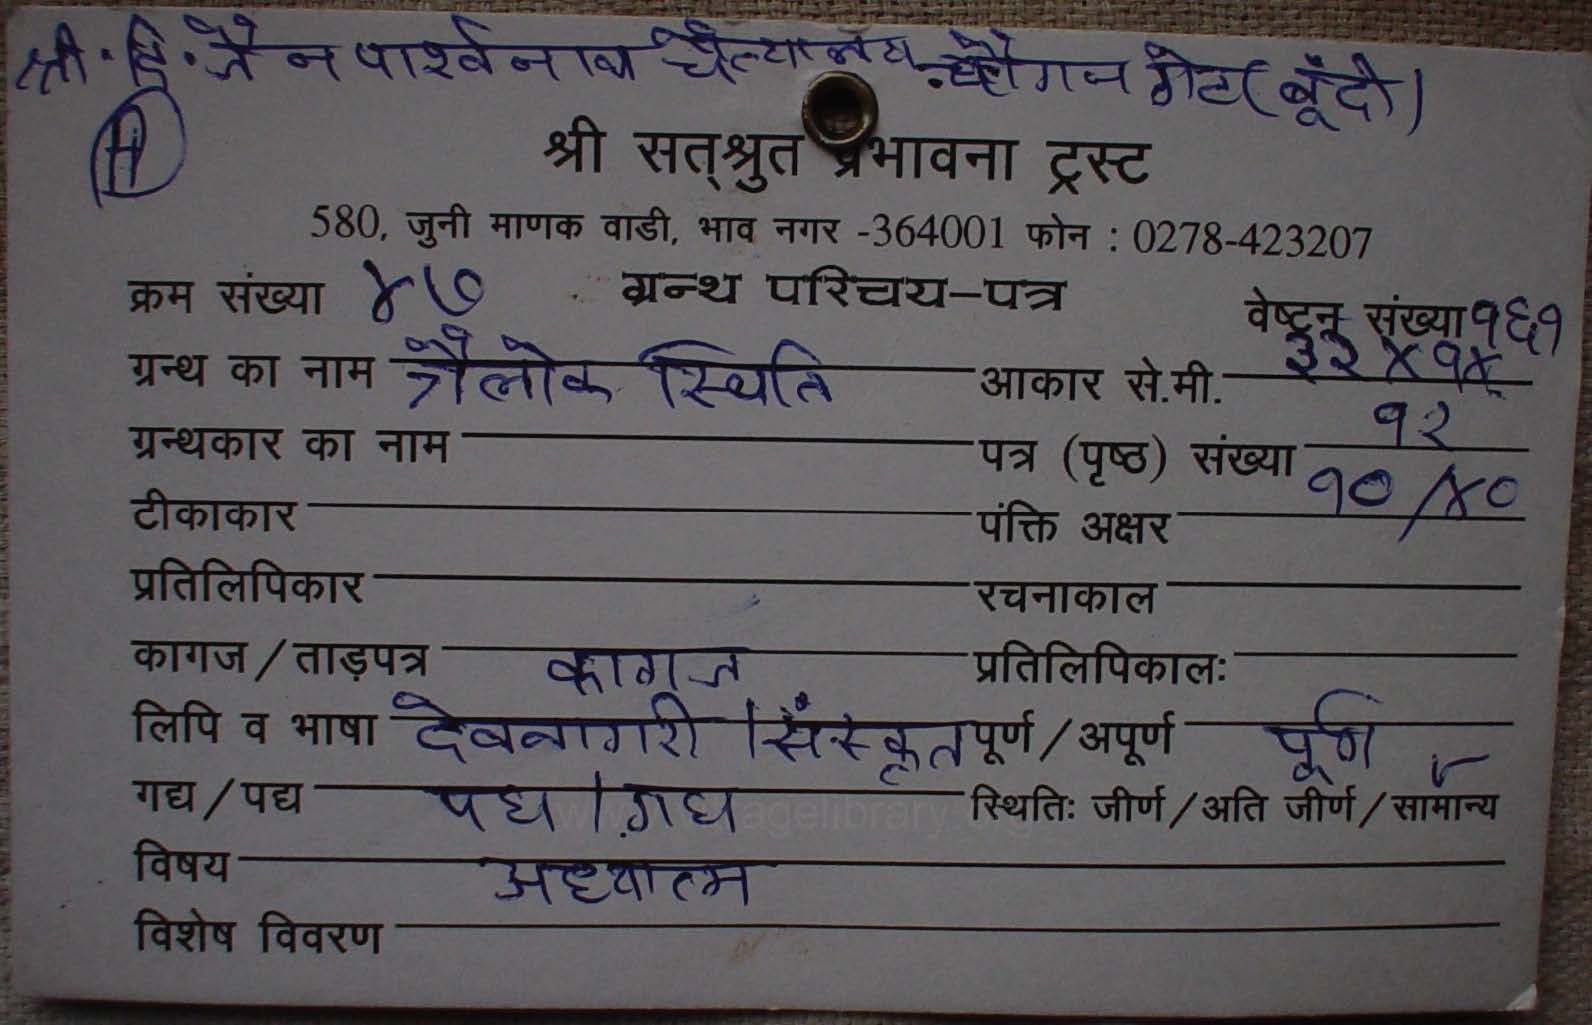 श्री. दि. जैन पार्श्वनाथ चैत्यालय चौगान गेट (बूँदी)
श्री सत्श्रुत प्रभावना ट्रस्ट
580, जुनी माणक वाडी, भाव नगर -364001 फोन : 0278-423207
क्रम संख्या ४७ ग्रन्थ परिचय-पत्र वेष्टन संख्या १६१
ग्रन्थ का नाम त्रैलोक स्थिति आकार से.मी. ३२ X १४
ग्रन्थकार का नाम पत्र (पृष्ठ) संख्या १२
टीकाकार पंक्ति अक्षर १० / ४०
प्रतिलिपिकार रचनाकाल
कागज / ताड़पत्र कागज प्रतिलिपिकालः
लिपि व भाषा देवनागरी / संस्कृत पूर्ण / अपूर्ण पूर्ण
गद्य / पद्य पद्य / गद्य स्थितिः जीर्ण / अति जीर्ण / सामान्य
विषय अध्यात्म
विशेष विवरण